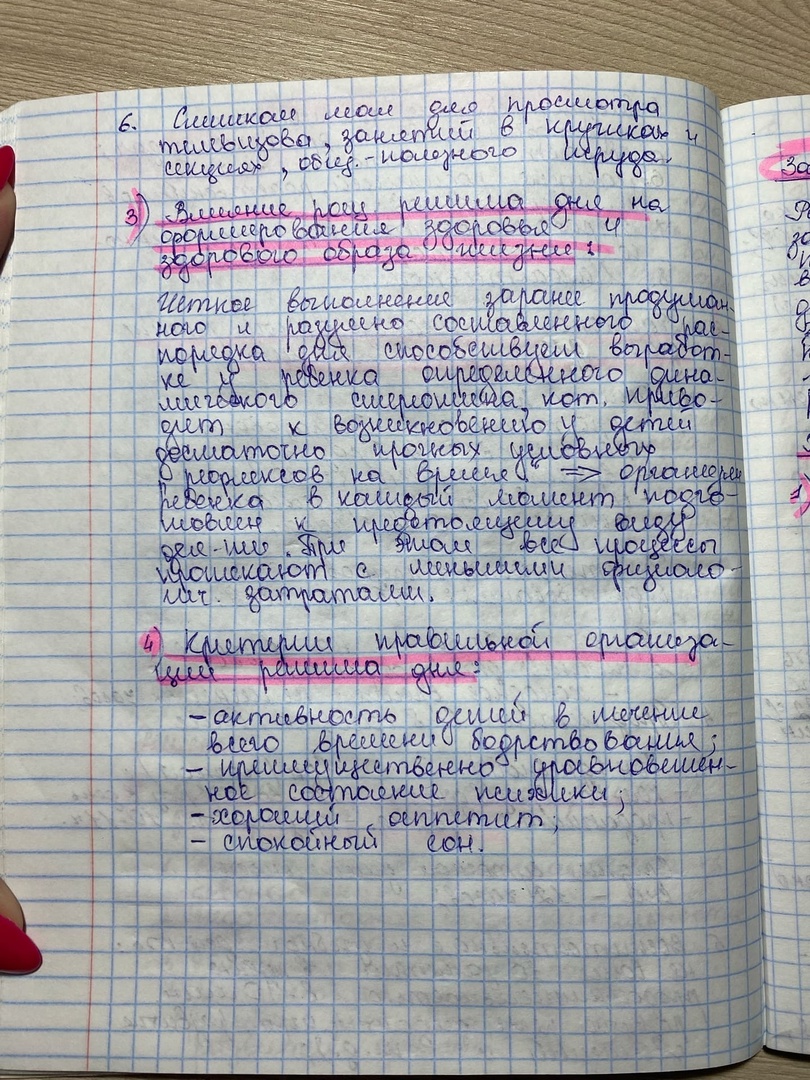 6. Слишком мал для просмотра
телевизора, занятий в кружках и
секциях, общ.-полезного труда.
3) Влияние рац режима дня на
формирование здоровья и
здорового образа жизни:
Четкое выполнение заранее продуман-
ного и разумно составленного рас-
порядка дня способствует выработ-
ке у ребенка определенного дина-
мического стереотипа, кот. приво-
дит к возникновению у детей
достаточно прочных условных
рефлексов на время" ⇒ организм
ребенка в каждый момент подго-
товлен к предстоящему виду
дея-ти. При этом все процессы
протекают с меньшими физиоло-
гич. затратами.
4) Критерии правильной организа-
ции режима дня:
- активность детей в течение
всего времени бодрствования;
- преимущественно уравновешен-
ное состояние психики;
- хороший аппетит;
- спокойный сон.
За
1)